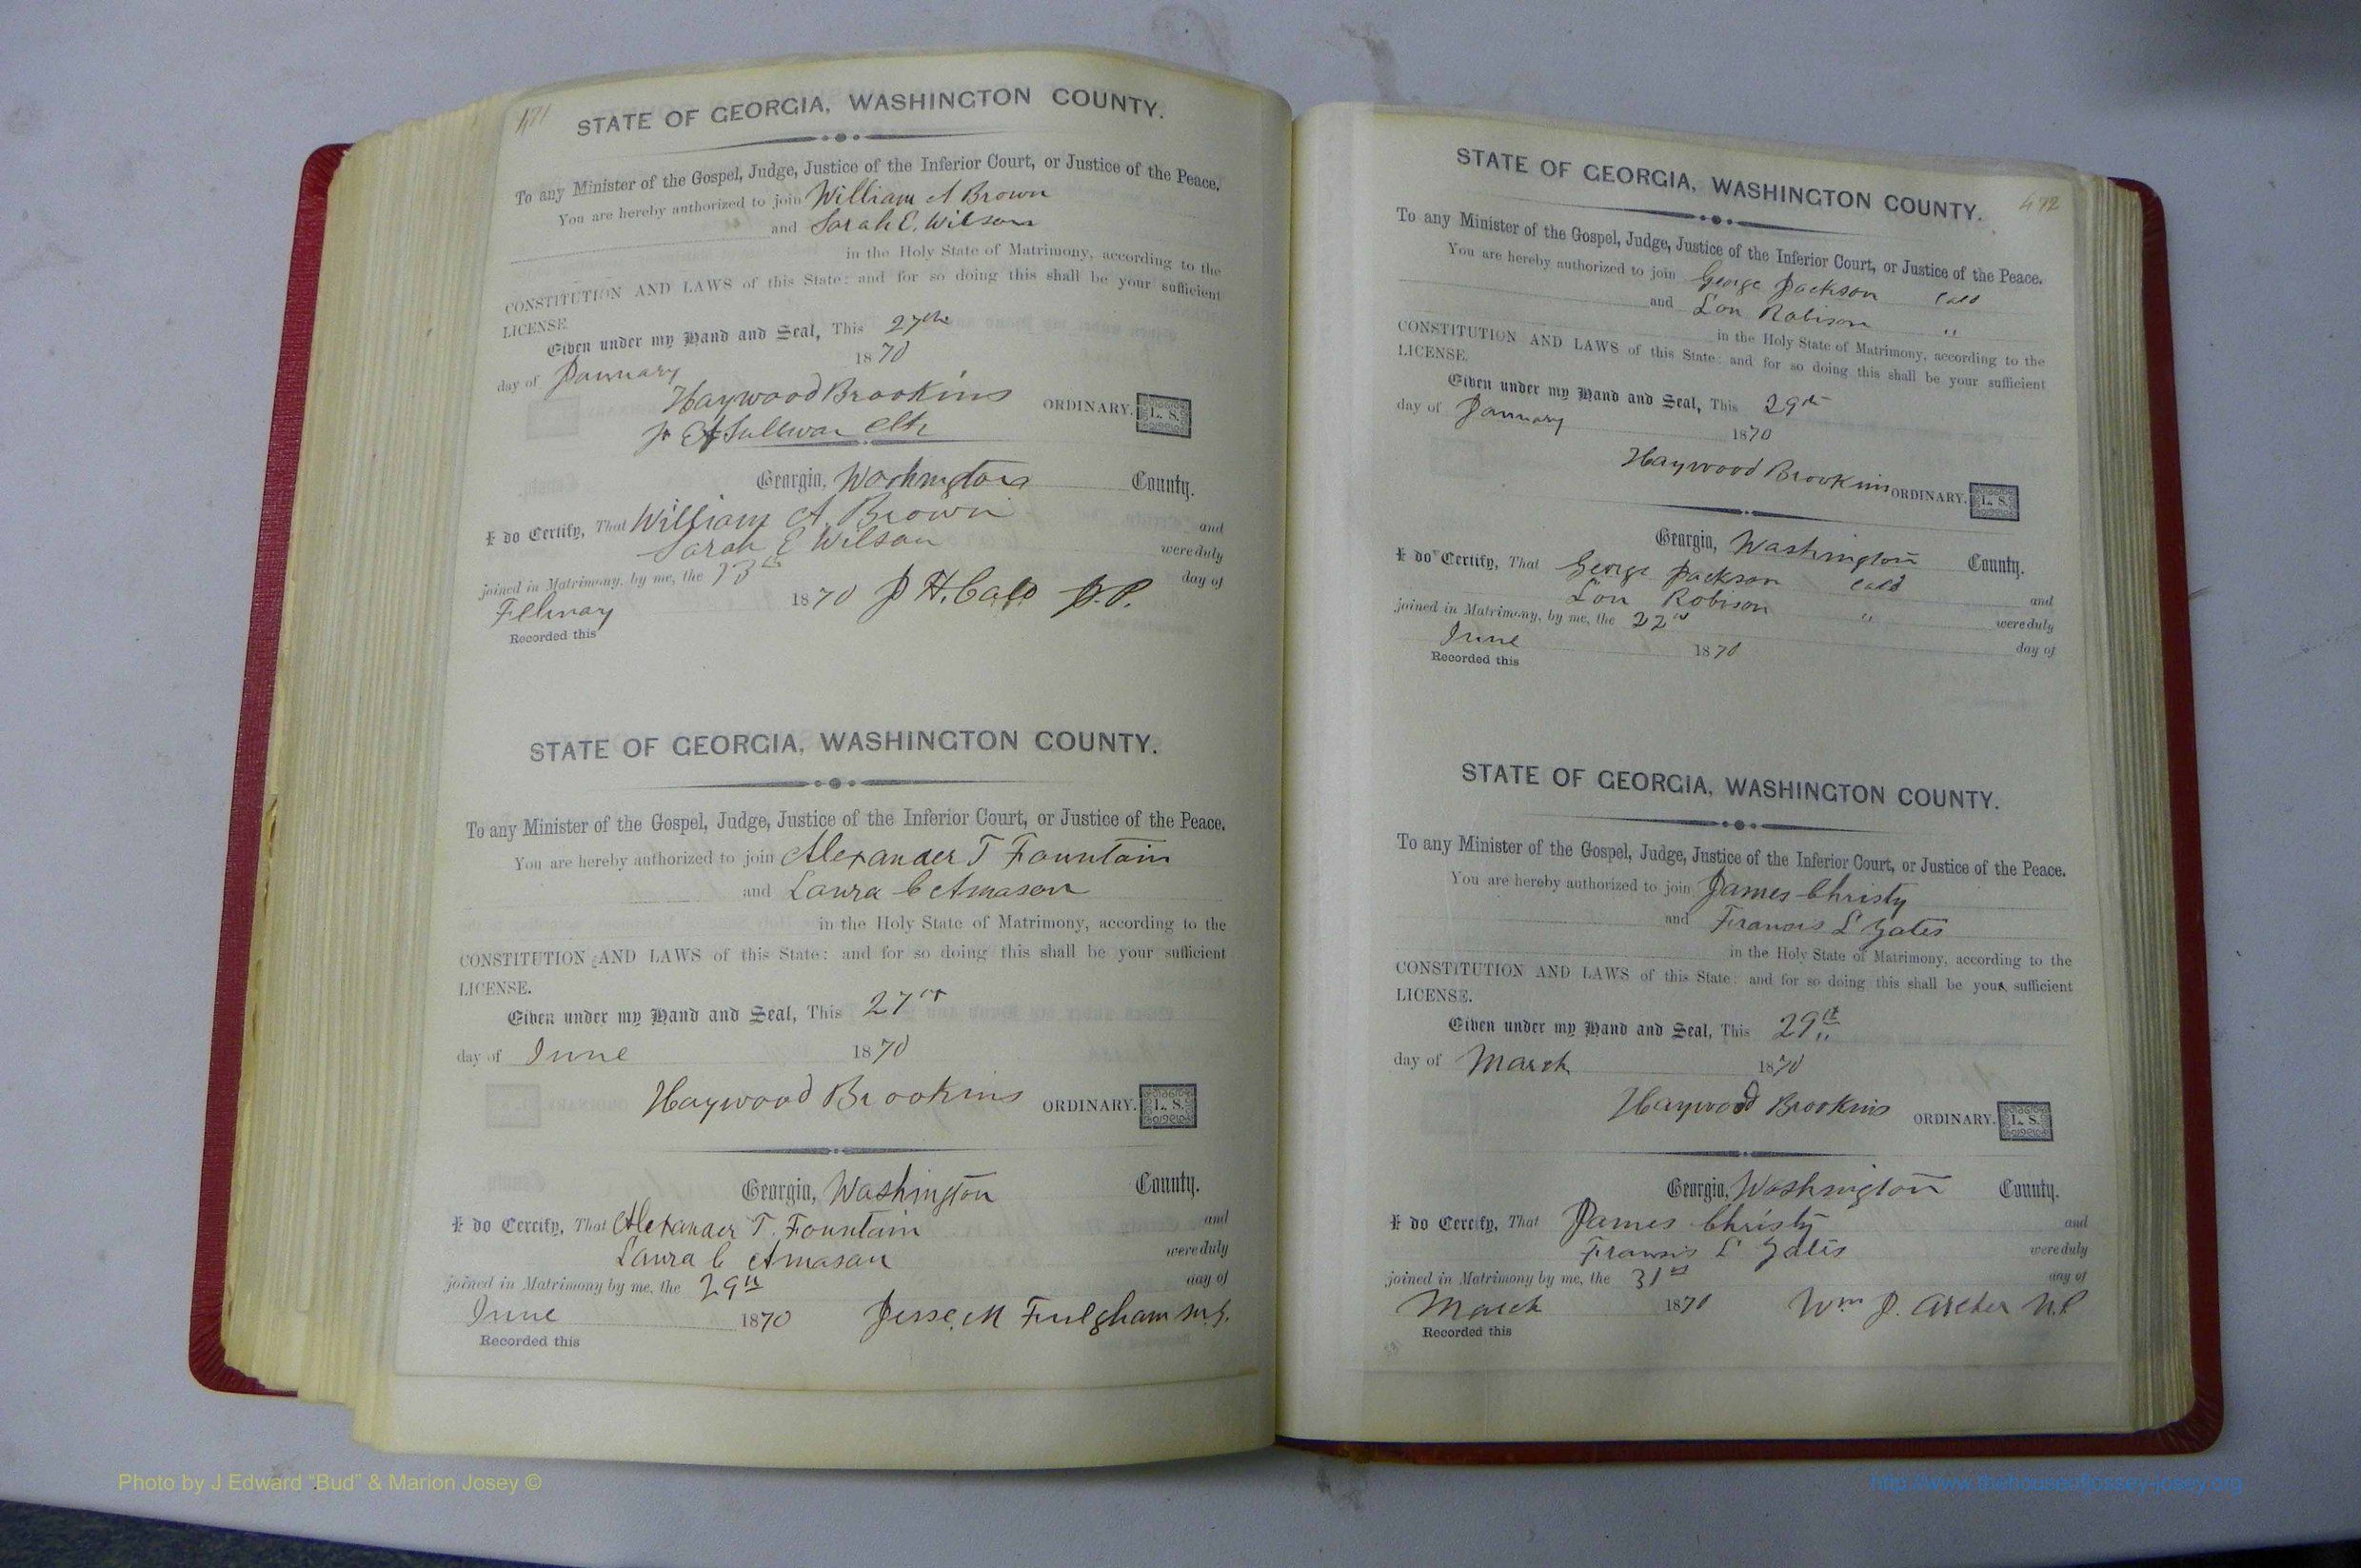 471
STATE OF GEORGIA, WASHINGTON COUNTY.
To any Minister of the Gospel, Judge, Justice of the Inferior Court, or Justice of the Peace.
You are hereby authorized to join William A Brown
and Sarah E. Wilson
in the Holy State of Matrimony, according to the
CONSTITUTION AND LAWS of this State: and for so doing this shall be your sufficient
LICENSE.
Given under my Hand and Seal, This 27th
day of January 1870
Haywood Brookins ORDINARY. L. S.
Sullivan Clk
Georgia, Washington County.
I do Certify, That William A. Brown and
Sarah E Wilson were duly
joined in Matrimony, by me, the 13th day of
Felmary 1870 J H. J.P.
Recorded this
STATE OF GEORGIA, WASHINGTON COUNTY.
To any Minister of the Gospel, Judge, Justice of the Inferior Court, or Justice of the Peace.
You are hereby authorized to join Alexander T Fountain
and Laura C Amason
in the Holy State of Matrimony, according to the
CONSTITUTION AND LAWS of this State: and for so doing this shall be your sufficient
LICENSE.
Given under my Hand and Seal, This 27th
day of June 1870
Haywood Brookins ORDINARY. L. S.
Georgia, Washington County.
I do Certify, That Alexander T. Fountain and
Laura C Amason were duly
joined in Matrimony by me, the 29th day of
June 1870 Jesse M Fulgham M.G.
Recorded this
472
STATE OF GEORGIA, WASHINGTON COUNTY.
To any Minister of the Gospel, Judge, Justice of the Inferior Court, or Justice of the Peace.
You are hereby authorized to join George Jackson Cold
and Lou Robison "
in the Holy State of Matrimony, according to the
CONSTITUTION AND LAWS of this State: and for so doing this shall be your sufficient
LICENSE.
Given under my Hand and Seal, This 29th
day of January 1870
Haywood Brookins ORDINARY. L. S.
Georgia, Washington County.
I do Certify, That George Jackson Cold and
Lou Robison " were duly
joined in Matrimony, by me, the 22nd day of
June 1870
Recorded this
STATE OF GEORGIA, WASHINGTON COUNTY.
To any Minister of the Gospel, Judge, Justice of the Inferior Court, or Justice of the Peace.
You are hereby authorized to join James Christy
and Francis L Yates
in the Holy State of Matrimony, according to the
CONSTITUTION AND LAWS of this State: and for so doing this shall be your sufficient
LICENSE.
Given under my Hand and Seal, This 29th
day of March 1870
Haywood Brookins ORDINARY. L. S.
Georgia, Washington County.
I do Certify, That James Christy and
Francis L Yates were duly
joined in Matrimony by me, the 31st day of
March 1870 Wm J. Archer N.P.
Recorded this
Photo by J Edward "Bud" & Marion Josey ©
http://www.thehouseofjossey-josey.org